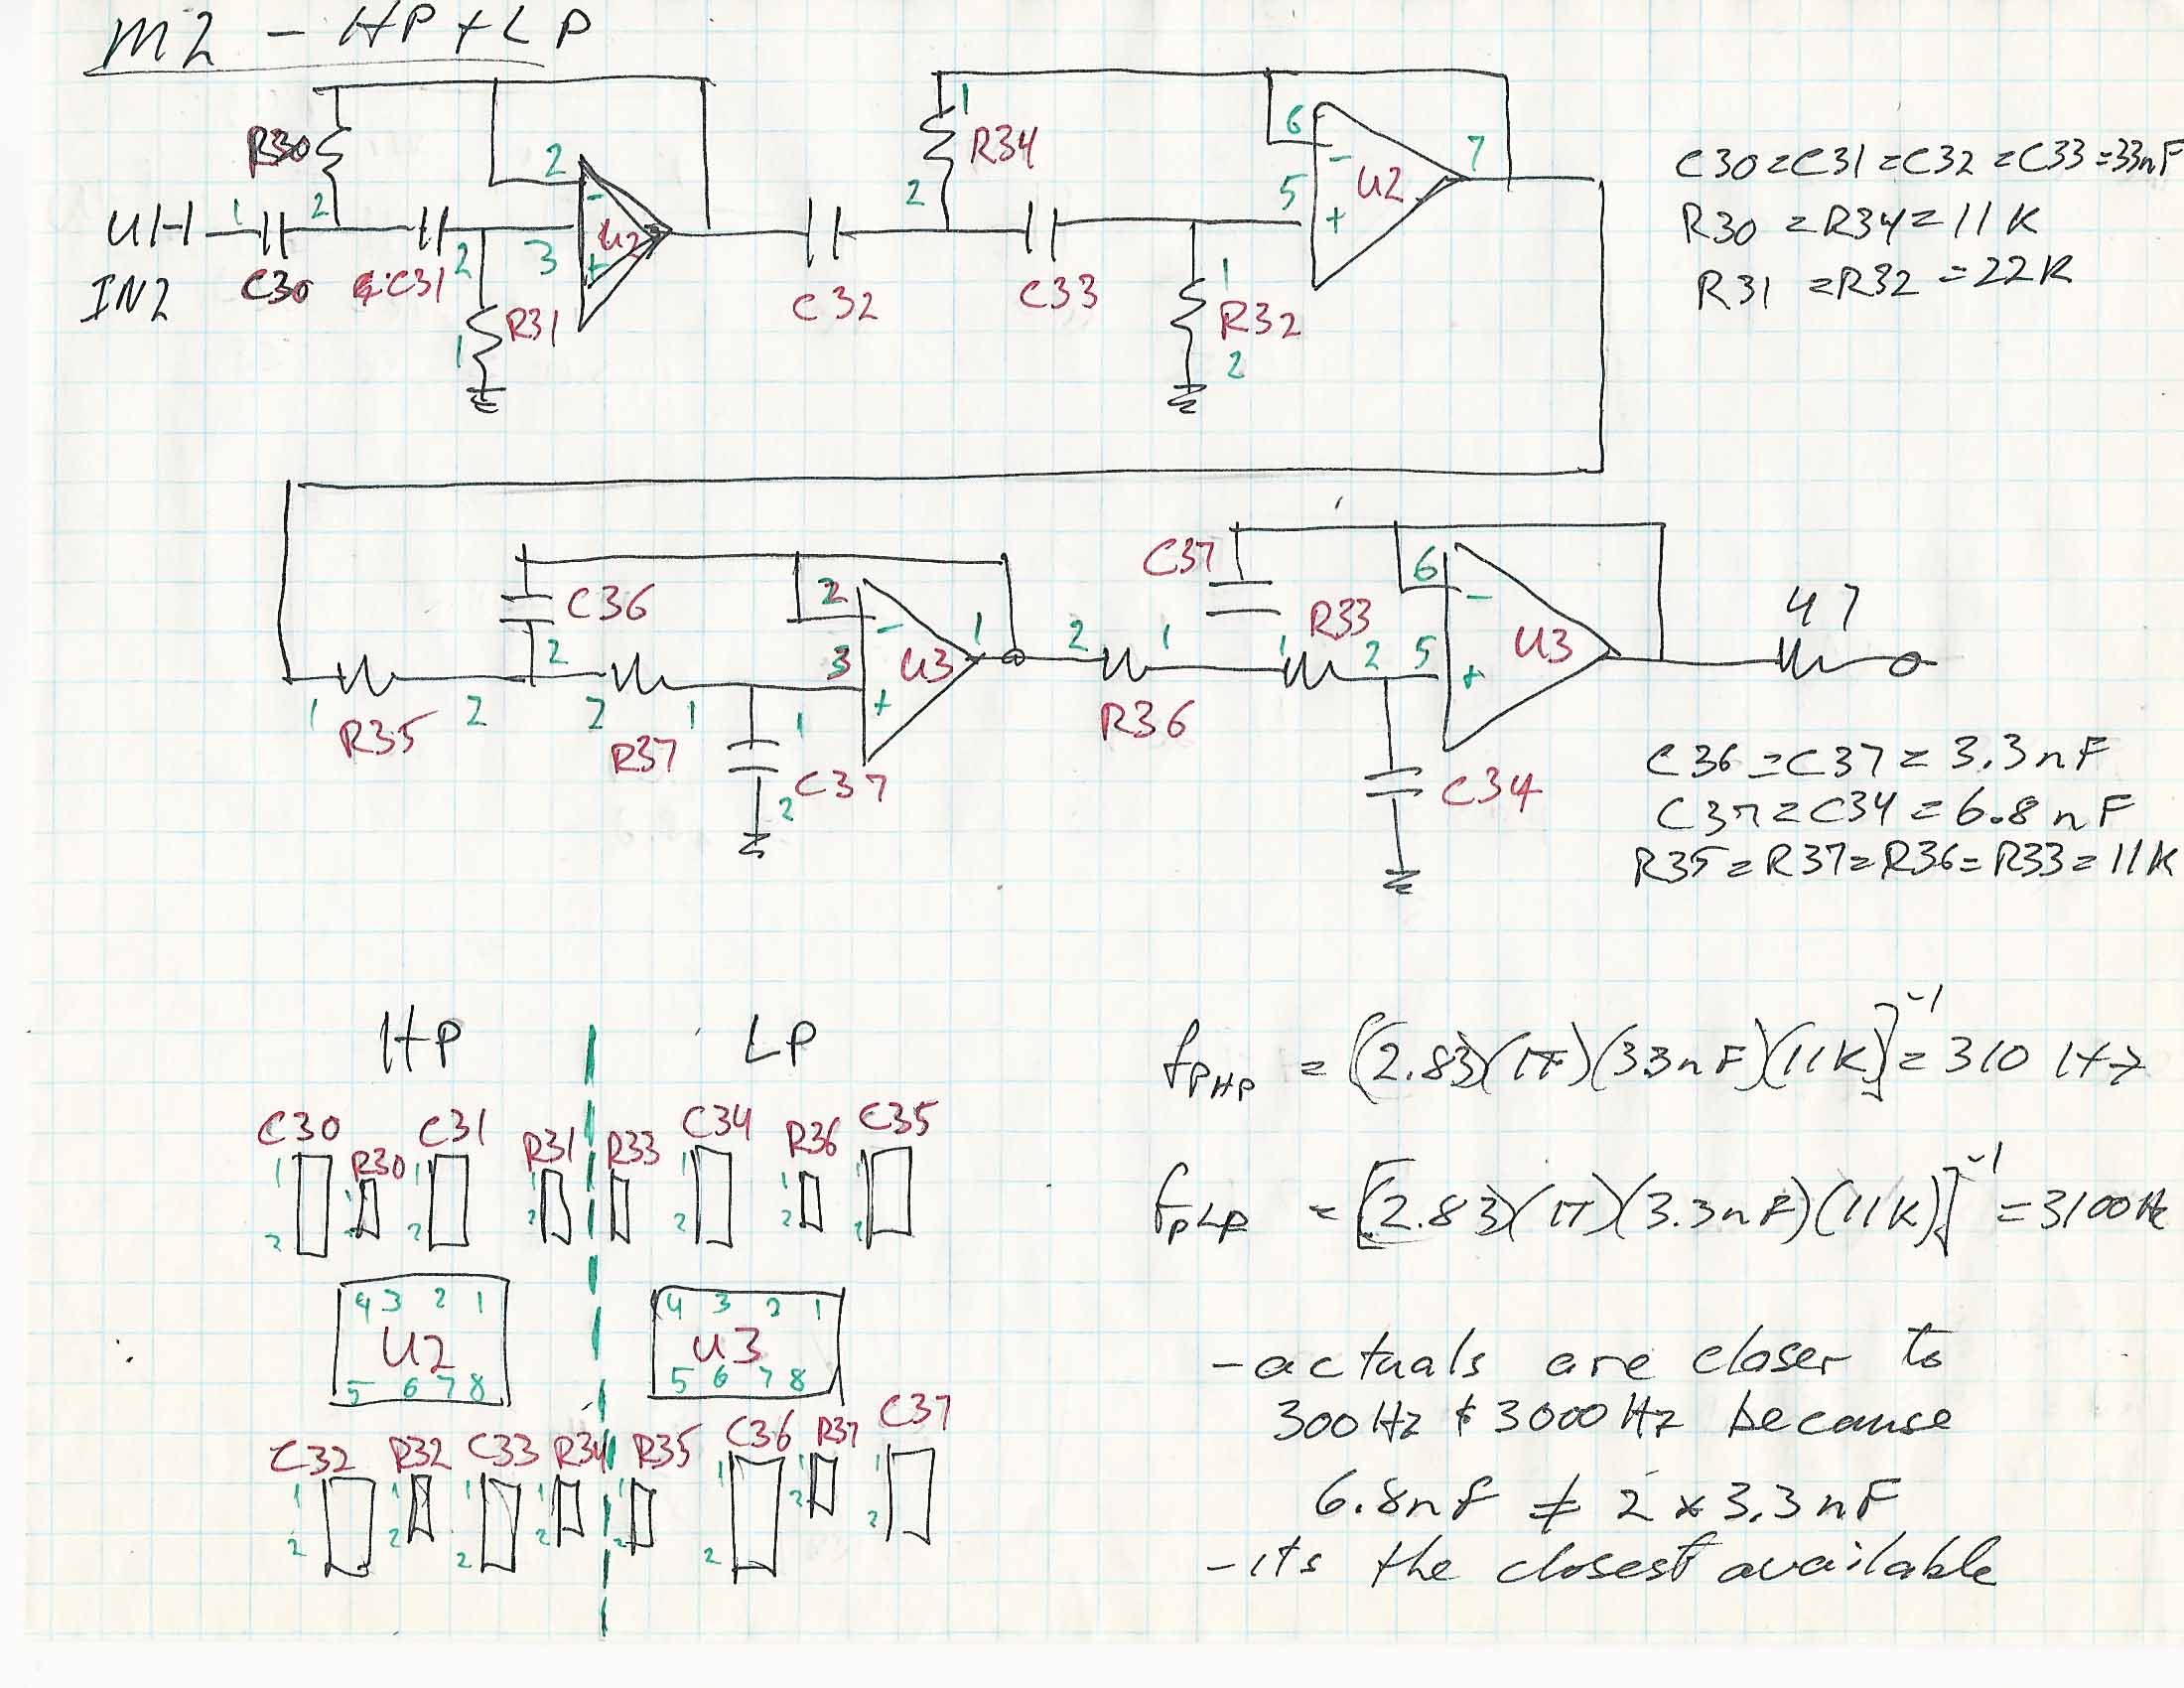 M2 - HP + LP
R30
2
1
2
UH
IN2
C30
C31
2
3
U2
R31
1
1
R34
2
C32
C33
6
5
7
U2
1
R32
2
C30 = C31 = C32 = C33 = 33nF
R30 = R34 = 11K
R31 = R32 = 22K
C36
2
1
R35
2
2
R37
1
2
3
1
U3
1
C37
2
2
R36
1
C37
1
R33
2
6
5
U3
C34
47
C36 = C37 = 3.3nF
C37 = C34 = 6.8nF
R35 = R37 = R36 = R33 = 11K
HP
LP
C30 R30 C31 R31 R33 C34 R36 C35
1 1 1 1 1 1
2 2 2 2 2 2
4 3 2 1
U2
5 6 7 8
4 3 2 1
U3
5 6 7 8
C32 R32 C33 R34 R35 C36 R37 C37
1 1 1 1 1 1 1 1
2 2 2 2 2 2 2 2
fPHP = [(2.83)(π)(33nF)(11K)]⁻¹ = 310 Hz
fPLP = [(2.83)(π)(3.3nF)(11K)]⁻¹ = 3100Hz
- actuals are closer to
300Hz & 3000Hz because
6.8nF ≠ 2 x 3.3nF
- its the closest available